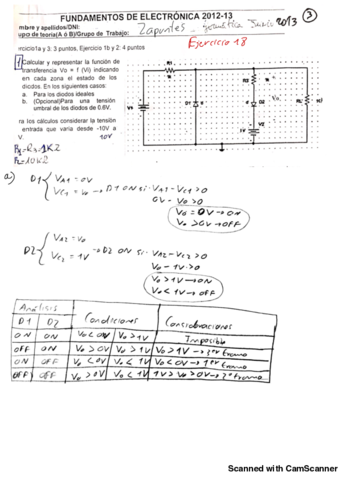 FUNDAMENTOS DE ELECTRÓNICA 2012-13
mbre y apellidos/DNI:
upo de teoría(A ó B)/Grupo de Trabajo:
2013 3
rcicio1a y 3: 3 puntos, Ejercicio 1b y 2: 4 puntos
Ejercicio 18
1 Calcular y representar la función de
transferencia Vo = f (Vi) indicando
en cada zona el estado de los
diodos. En los siguientes casos:
a. Para los diodos ideales
b. (Opcional)Para una tensión
umbral de los diodos de 0.6V.
ra los cálculos considerar la tensión
entrada que varía desde -10V a
V. 10V
R1 = R3 = 1K2
R2 = 10K2
R1
R3
D1
D2
Vo
RL
V1
V2
1V
a) D1 { VA1 = 0V
VC1 = Vo → D1 ON si VA1 - VC1 > 0
0V - Vo > 0
Vo < 0V → ON
Vo > 0V → OFF
D2 { VA2 = Vo
VC2 = 1V → D2 ON si VA2 - VC2 > 0
Vo - 1V > 0
Vo > 1V → ON
Vo < 1V → OFF
Análisis
D1 D2 Condiciones Consideraciones
ON ON Vo < 0V Vo > 1V Imposible
OFF ON Vo > 0V Vo > 1V Vo > 1V → 3er tramo
ON OFF Vo < 0V Vo < 1V Vo < 0V → 1er tramo
OFF OFF Vo > 0V Vo < 1V 1V > Vo > 0V → 2º tramo
Scanned with CamScanner